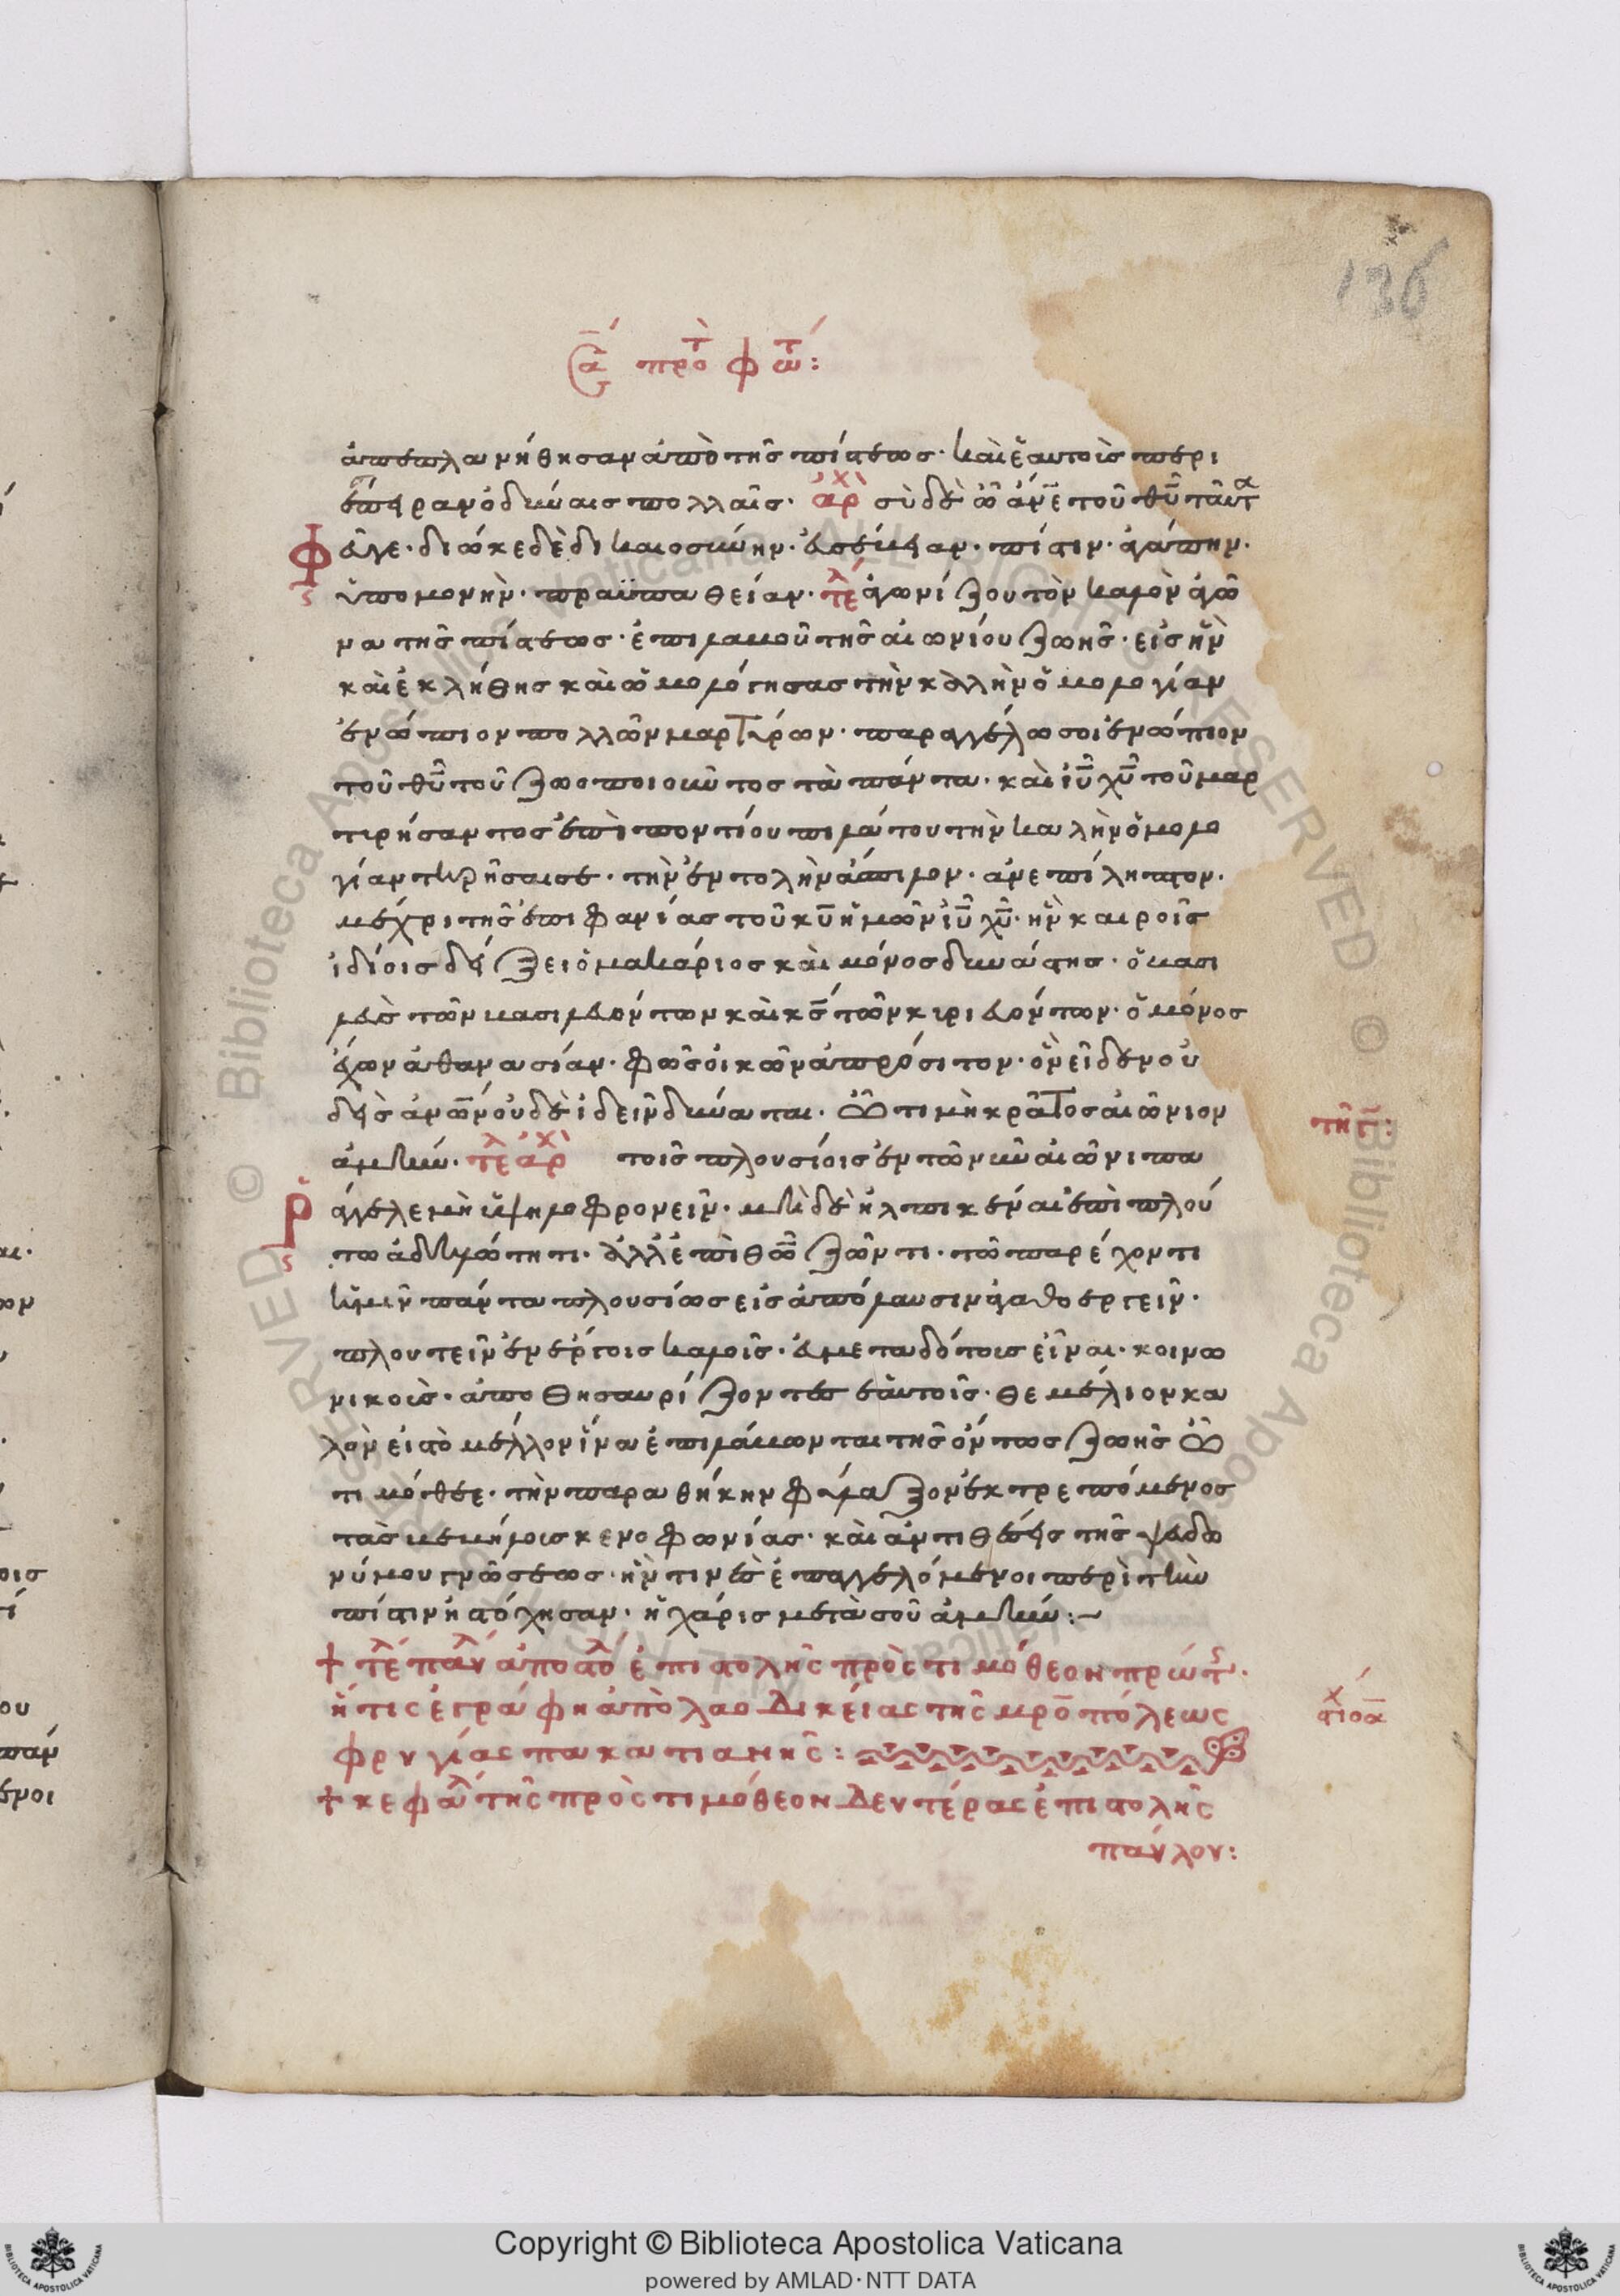 136
ἀπεπλανήθησαν ἀπὸ τῆς πίστεως· καὶ ἑαυτοῖς περι
έπειραν ὀδύναις πολλαῖς· ἀρχ σὺ δὲ ὦ ἄνε τοῦ θυ ταῦτα
φεῦγε· δίωκε δὲ δικαιοσύνην· εὐσέβειαν· πίστιν· ἀγάπην·
ὑπομονὴν· πραϋπαθείαν· τε ἀγωνίζου τὸν καλὸν ἀγῶ
να τῆς πίστεως· ἐπιλαβοῦ τῆς αἰωνίου ζωῆς· εἰς ἣν
καὶ ἐκλήθης καὶ ὡμολόγησας τὴν καλὴν ὁμολογίαν
ἐνώπιον πολλῶν μαρτύρων· παραγγέλω σοι ἐνώπιον
τοῦ θυ τοῦ ζωοποιοῦντος τὰ πάντα· καὶ ιυ χυ τοῦ μαρ
τιρήσαντος ἐπὶ ποντίου πιλάτου τὴν καλὴν ὁμολο
γίαν τηρῆσαι σε· τὴν ἐντολὴν ἄσπιλον· ἀνεπίληπτον·
μέχρι τῆς ἐπιφανίας τοῦ κυ ἡμῶν ιυ χυ· ἣν καιροῖς
ἰδίοις δείξει ὁ μακάριος καὶ μόνος δυνάστης· ὁ βασι
λεὺς τῶν βασιλευόντων καὶ κς τῶν κιριευόντων· ὁ μόνος
ἔχων ἀθανασίαν· φῶς οἰκῶν ἀπρόσιτον· ὃν εἶδεν οὐ
δεὶς ἀνων οὐδὲ ἰδεῖν δύναται· ὧ τιμὴ κράτος αἰώνιον
ἀμήν· τε ἀρχ τοῖς πλουσίοις ἐν τῶ νῦν αἰῶνι πα
τῆ
ράγγελε μὴ ὑψηλοφρονεῖν· μηδὲ ἠλπικέναι ἐπὶ πλού
του ἀδηλώτητι· ἀλλ' ἐπὶ θῶ ζῶντι· τῶ παρέχοντι
ἡμῖν πάντα πλουσίως εἰς ἀπόλαυσιν ἀγαθοεργεῖν·
πλουτεῖν ἐν ἔργοις καλοῖς· εὐμεταδότοις εἶναι· κοινω
νικοὺς· ἀποθησαυρίζοντες ἑαυτοῖς· θεμέλιον κα
λὸν εἰς τὸ μέλλον ἵνα ἐπιλάβωνται τῆς ὄντως ζωῆς ὦ
τιμόθεε· τὴν παραθήκην φύλαξον ἐκτρεπόμενος
τὰς βεβήλοις κενοφωνίας· καὶ ἀντιθέσεις τῆς ψευδω
νύμου γνώσεως· ἥν τινες ἐπαγγελόμενοι περὶ τὴν
πίστιν ἠστόχησαν· ἡ χάρις μετὰ σοῦ ἀμήν:
+ τε παυ ἀποστο ἐπιστολῆς πρὸς τιμόθεον πρώτης·
ἥτις ἐγράφη ἀπὸ λαοδικείας τῆς μρο πόλεως
φρυγίας πακατιανῆς:
+ κεφα τῆς πρὸς τιμόθεον δευτέρας ἐπιστολῆς
παύλου:
Copyright © Biblioteca Apostolica Vaticana
powered by AMLAD·NTT DATA